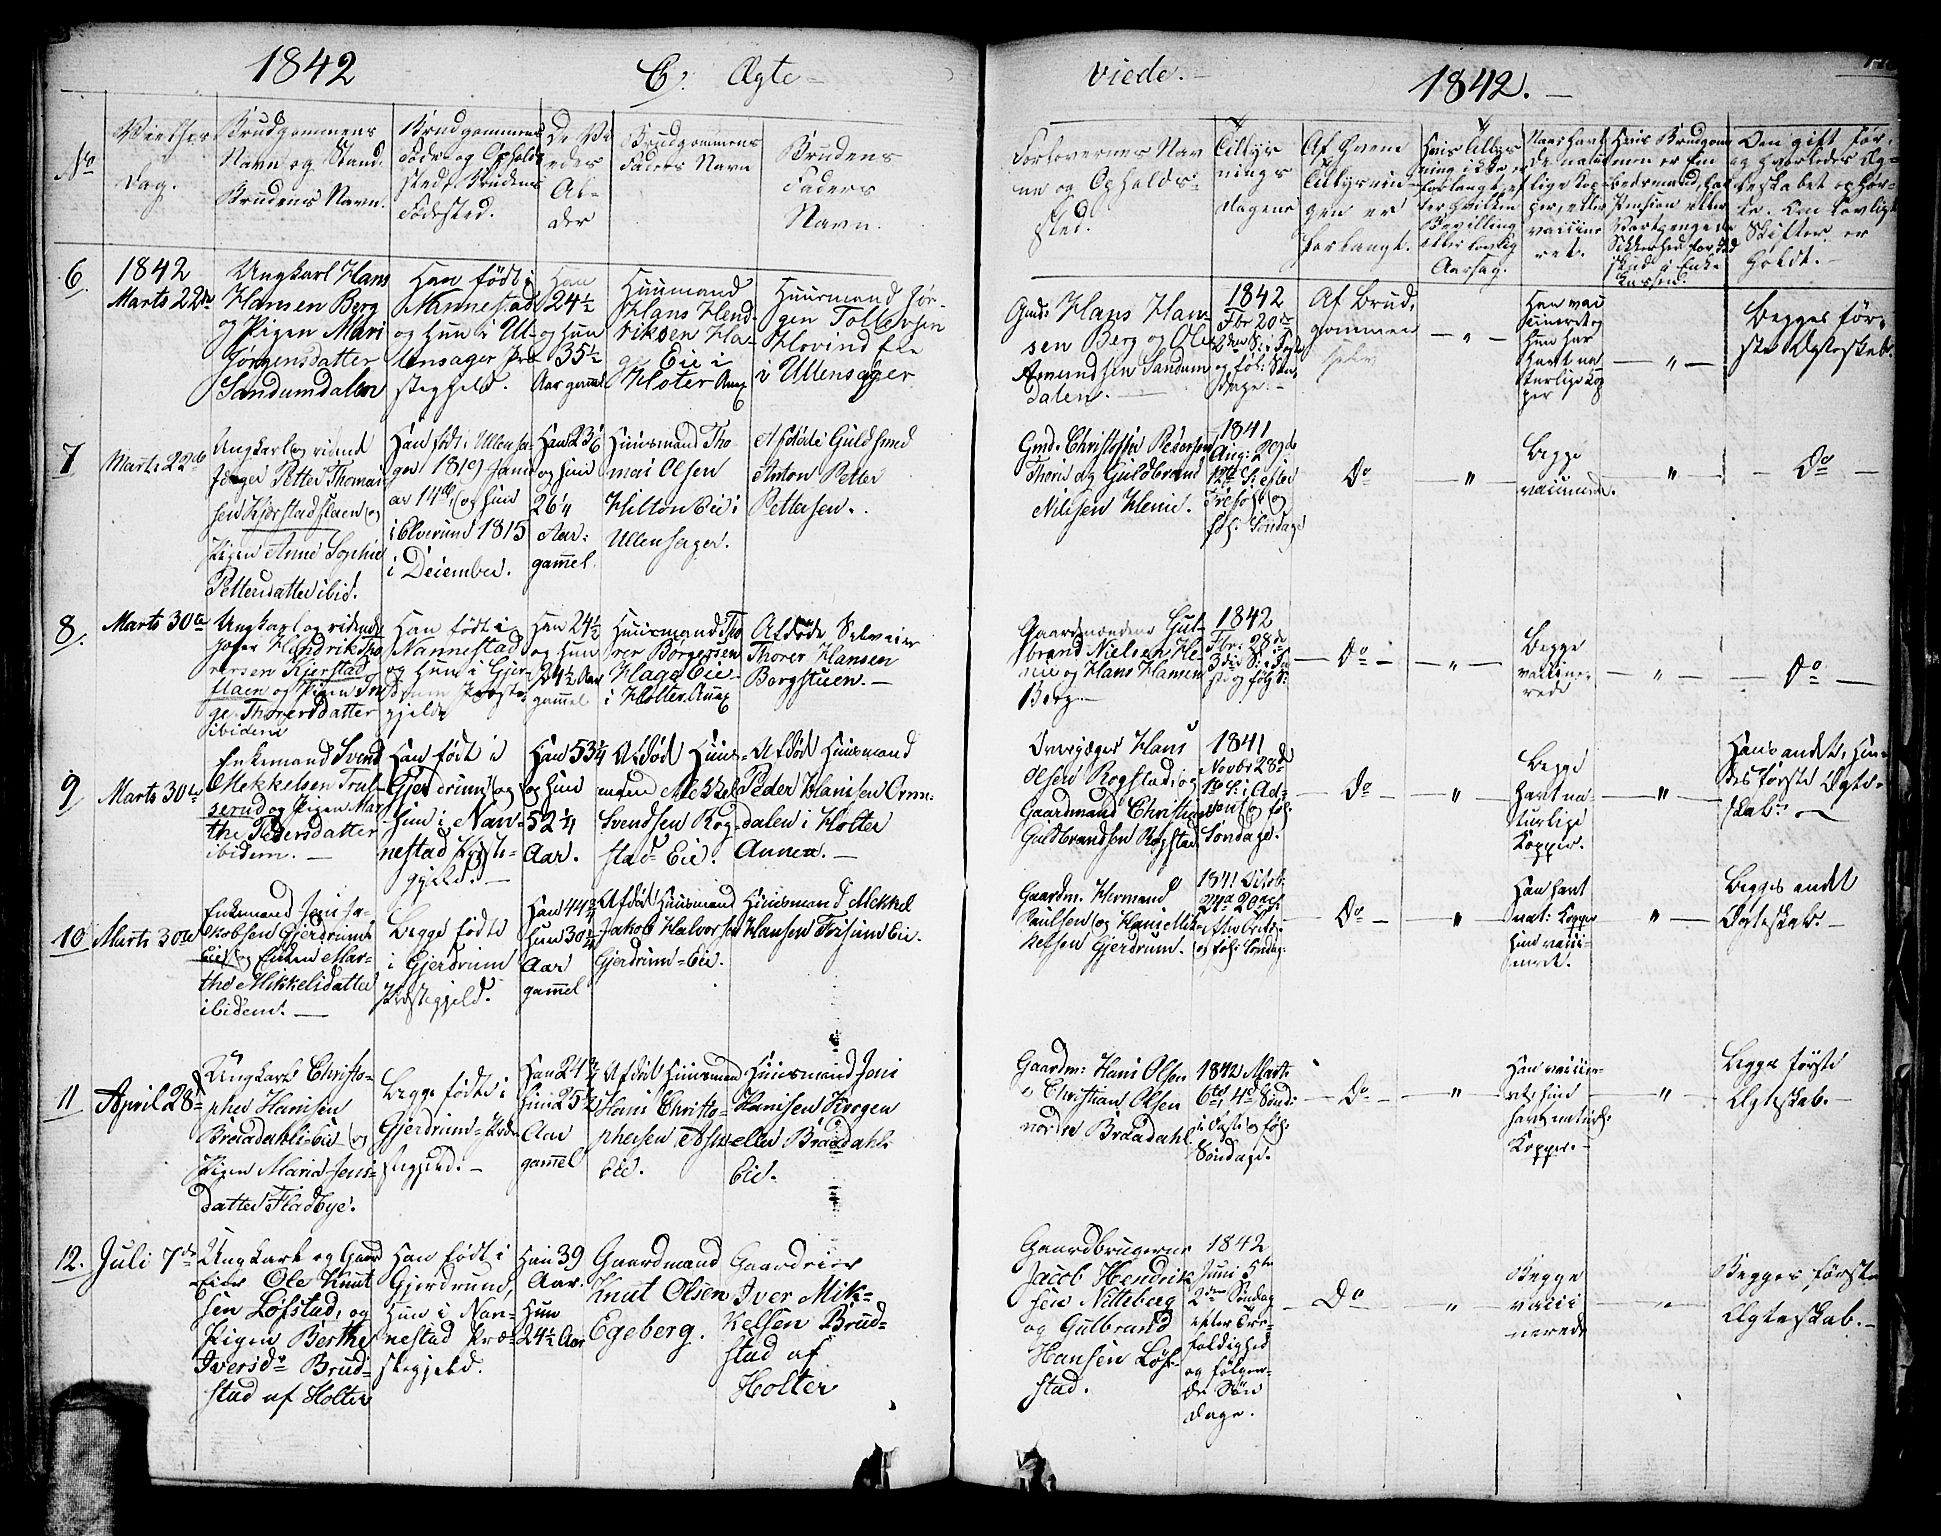 1842
C. Ægte
viede.
1842.
No
Vielses
Dag.
Brudgommens
Navn og Stand.
Brudens Navn.
Brudgommens
Føde og Opholds
sted. Brudens
Fødested.
De Vi
edes
Al-
der
Brudgommens
Faders Navn
Brudens
Faders
Navn.
Forlovernes Nav
ne og Opholds-
sted.
Tillys
nings
Dagene
Af hvem
Tillysnin-
gen er
forlangt.
Hvis Tillys
ning ikke er
forlangt, ef
ter hvilken
Bevilling
eller lovlig
Aarsag.
Naar havt
de natur
lige Kop-
per, eller
vaccine
ret.
Den gift før,
og hvorledes Æg-
teskabet ophør-
te. Om lovligt
Skifte er
holdt.
6.
1842
Marts 22de
Ungkarl Hans
Hansen Berg
og Pigen Mari
Jörgensdatter
Sandumdalen
Han født i
Nannestad
og Hun i Ul-
lensager Præ-
stegjeld.
Han
24½
og hun
35½
Aar gamml
Huusmand
Hans Hend-
riksen Ha-
ge Eie i
Holter Anx
Huusmand Jör-
gen Tollevsen
Hovind Eie
i Ullensager
Gmd: Hans Han-
sen Berg og Ole
Amundsen Sandum
dalen.
1842
Fbr 20de
2den S: i Faste
og føl: Sön
dage.
Af Brud,
gommen
selv
Han vac
cineret og
Hun har
havt na
turlige Kop
per
Begges før-
ste Ægteskab.
7
Marts 22de
Ungkarl og ridend
Jæger Petter Thomas
sen Kjerstadflaen og
Pigen Anne Sophie
Pettersdatter ibid.
Han født i Ullensa-
ger 1819 Janu
ar 14de, og Hun
i Elverum 1815
i December.
Han 23 1/6
og Hun
26¼
Aar
gammel.
Huusmand Tho
mas Olsen
Hilton Eie i
Ullensager.
Afdøde Guldsmed
Anton Petter
Pettersen.
Gmd: Christopher Pedersen
Thoris og Guldbrand
Nilssen Henie.
1841
Aug: 29de
12te S: efter
Trefold: og
føl: Søndage
Do
Begge
vaccinerede.
Do
8.
Marts 30te
Ungkarl og ridende
Jæger Hendrik Tho
rersen Kjerstad
flaen og Pigen In
ge Thorersdatter
ibidem
Han født i
Nannestad
og Hun i Gjer
drum Præste
gjeld
Han 24½
og hun
24½ Aar
gammel
Huusmand Tho
rer Borgersen
Hage Eie
i Holter Anex
Afdøde Selveier
Thorer Hansen
Borgstuen.
Gaardmændene Gul-
brand Nielsen He-
nie og Hans Hansen
Berg.
1842
Fbr: 28de
3die S: i Fa
ste og følg S:
Do
Begge
vaccine-
rede
Do
9
Marts 30te
Enkemand Svend
Mekkelsen Trul-
serud og Pigen Mar
the Pedersdatter
ibidem.
Han født i
Gjerdrum, og
Hun i Nan-
nestad Præste-
gjeld.
Han 53¼
og Hun
52¼
Aar.
Afdød Huus-
mand Mekkel
Svendsen Rog-
stad-Eie.
Afdød Huusmand
Peder Hansen Orm-
dalen i Holter
Annex.
Overjæger Hans
Olsen Rogstad, og
Gaardmand Christian
Guldbrandsen Rogstad
1841
Novbr 28de
1te S: i Ad-
vent og føl:
Søndage.
Do
Begge
havt na-
turlige
Kopper.
Hans andet, Hen-
des første Ægte-
skab.
10
Marts 30te
Enkemand Jens Ja-
kobsen Gjerdrum-
Eie, og Enken Mar-
the Mikkelsdatter
ibidem.
Begge fødte
i Gjerdrum
Præstegjeld.
Han 44¾
Hun 30¼
Aar
gammel
Afdød Huusmand
Jakob Halvorsen
Gjerdrum-Eie.
Huusmand Mekkel
Hansen Frisum Eie.
Gaardm. Hermand
Paulsen og Hans Mik-
kelsen Gjerdrum.
og føl: Søndag
Do
Han havt
nat: Kopper
Hun vacci-
neret.
Begges andet
Ægteskab.
11
April 28de
Ungkarl Christo-
pher Hansen
Braadahls-Eie og
Pigen Maria Jens-
datter Fladbye.
Begge fødte i
Gjerdrum-Præ
stegjeld.
Hun 25½
Aar
gammel
Afdød Huusmand
Hans Christo-
phersen Asm-
Eie.
Huusmand Jens
Hansen Krogen
eller Braadahls
Eie.
Gaardm: Hans Olsen
o Christian Olsen
nordre Braadahl.
1842 Marts
6te, 4de Sønd:
i Faste og føl:
Søndage.
Do
Han vaccine-
ret, Hun
havt naturl:
Kopper.
Begge første
Ægteskab.
12.
Juli 7de
Ungkarl og Gaard
Eier Ole Knut
sen Løfstad, og
Pigen Berthe
Iversdr Brud-
stad af Holter
Han født i
Gjerdrum,
Hun i Nan-
nestad Præ-
stegjeld.
Han 39
Aar.
Hun
24½ Aar
Gaardmand
Knut Olsen
Egeberg.
Gaardeier
Iver Mik-
kelsen Brud-
stad af
Holter
Gaardbrugerne
Jacob Hendrik
sen Nitteberg
og Gulbrand
Hansen Løf-
stad.
1842
Juni 5te
2den Søndag
efter Tre-
foldighed
og følgen-
de Søn
dage.
Do
Begge
vacci
nerede
Begges første
Ægteskab.